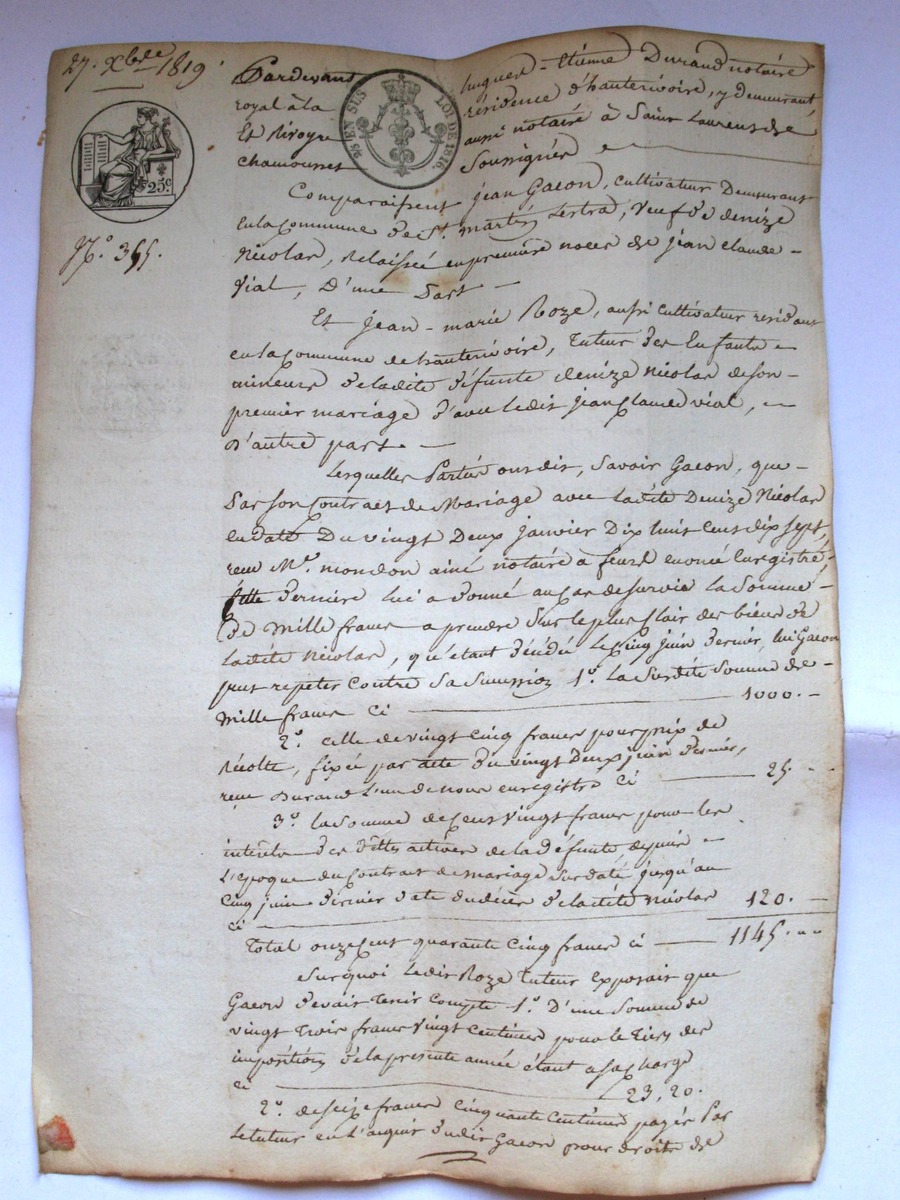 27. Xbre 1819
25c
N.° 355.
9/5 EN SUS LOI DE 1816.
Pardevant hugues-Etienne Durand notaire
royal à la résidence d'hauterivoire, y demeurant,
Et Rivoyre aussi notaire à Saint Laurens de
chamousset Soussignés
Comparaissent jean Gacon, cultivateur Demeurant
en la commune de St. martin Lestra, veuf de denize
Nicolas, relaissée en première noces de jean claude
Vial, D'une Part
Et jean-marie Roze, aussi cultivateur residant
en la Commune de hauterivoire, tuteur des Enfants
mineurs de ladite défunte denize Nicolas de son
premier mariage d'avec ledit jean Claude vial,
D'autre part.
Lesquelles Parties ont dit, savoir Gacon, que
Par son Contract de Mariage avec ladite Denize Nicolas
en date Du vingt Deux janvier Dix huit cent dix sept,
reçu Me. mondon ainé notaire à feurs enoncé Enregistré,
cette dernière lui a donné au cas de survie la Somme
De Mille francs a prendre Sur le plus Clair des biens de
Ladite Nicolas, qu'étant décédée le Cinq juin dernier, lui Gacon
peut repeter contre Sa Succession 1.° la Susdite Somme de
Mille francs Ci 1000.
2.° celle de vingt Cinq francs pour prix de
Récolte, fixée par acte du vingt Deux juin Dernier,
reçu Durand l'un de nous enregistré Ci 25
3.° la Somme de Cent vingt francs pour les
interets des dettes actives de la défunte depuis
l'epoque du Contrat de mariage Susdaté, jusqu'au
Cinq juin dernier date du décès de ladite Nicolas
ci 120.
Total onze cent quarante Cinq francs ci 1145.
Surquoi Ledit Roze Tuteur Exposait que
Gacon devait tenir Compte 1.° D'une Somme de
vingt Trois francs vingt Centimes pour le Tiers des
impositions de la presente année étant a sa charge
Ci 23,20.
2.° de seize francs Cinquante Centimes payés Par
le tuteur en l'acquit dudit Gacon pour droits de